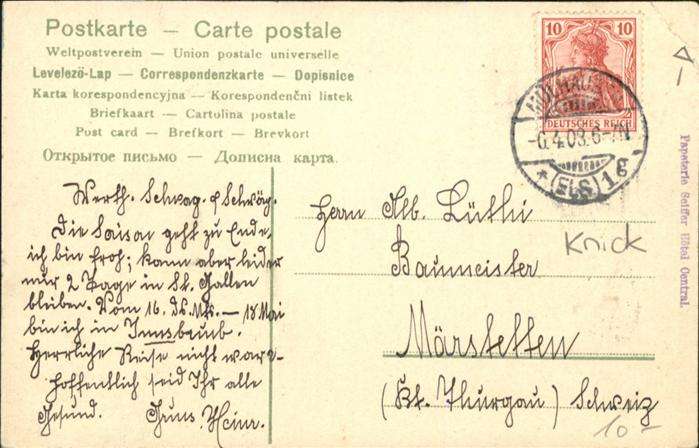 Postkarte — Carte postale
Weltpostverein — Union postale universelle
Levelező-Lap — Correspondenzkarte — Dopisnice
Karta korespondencyjna — Korespondenční listek
Briefkaart — Cartolina postale
Post card — Brefkort — Brevkort
Открытое письмо — Дописна карта.
10 10
DEUTSCHES REICH
-6.4.08.6-7N.
* (ELS) 1 g
Papeterie Seifer Hôtel Central.
Werth. Schwag. & Schwäg.
Die Saison geht zu Ende,
ich bin froh; kann aber leider
nur 2 Tage in St. Gallen
bleiben. Vom 16. ds. Mts. — 15 Mai
bin ich in Innsbruck.
Herrliche Reise nicht war-
hoffentlich seid Ihr alle
Gesund. Gruss Heinr.
Herrn Alb. Lüthi
Baumeister
Märstetten
(Kt. Thurgau) Schweiz
Knick
10-